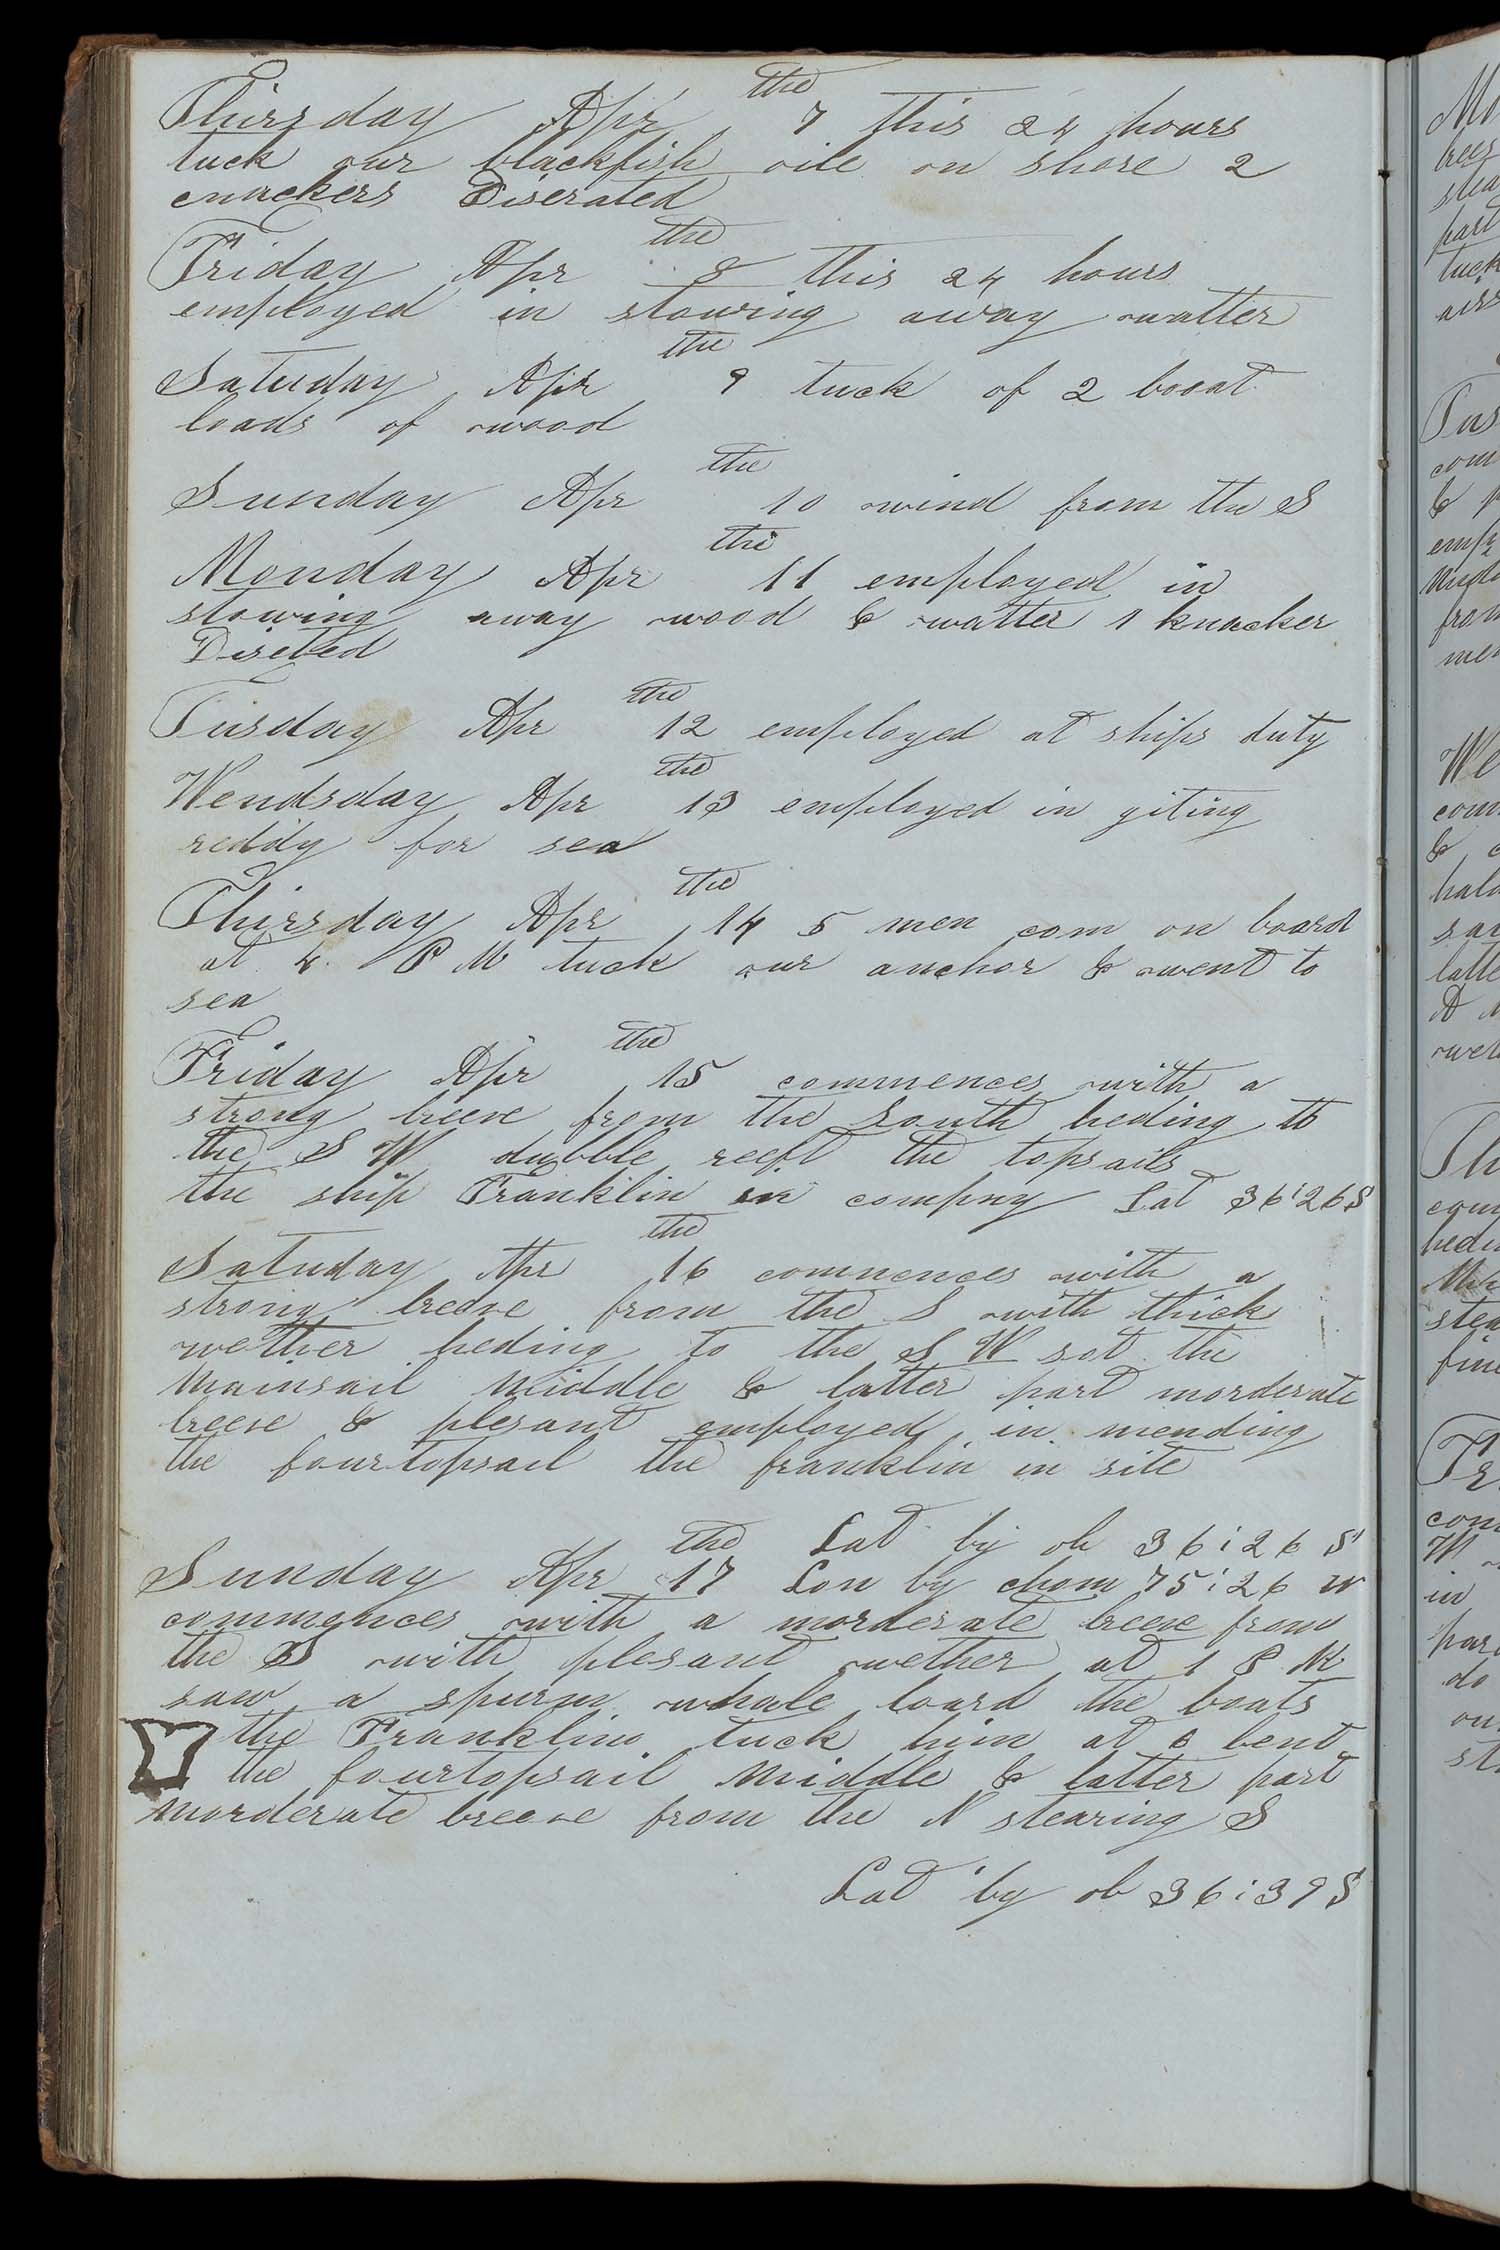 Thirsday Apr the 7 this 24 hours
tuck our blackfish oile on shore 2
cnackers Diserated
Friday Apr the 8 this 24 hours
employed in stowing away watter
Satuday Apr the 9 tuck of 2 booat
loads of wood
Sunday Apr the 10 wind from the S
Monday Apr the 11 employed in
stowing away wood & watter 1 knacker
Tusday Apr the 12 employed at ships duty
Wendsday Apr the 13 employed in giting
reddy for sea
Thirsday Apr the 14 5 men com on board
at 4 P M tuck our anchor & went to
sea
Friday Apr the 15 commences with a
strong breeve from the South heding to
the S W dubble reeft the topsails
the ship Franklin in compny Lat 36:26 S
Satuday Apr the 16 commences with a
strong breeve from the S with thick
wether heding to the S W sot the
Mainsail Middle & latter part morderate
breeve & plesant employed in mending
the fourtopsail the franklin in site
Lat by ob 36:26 S
Sunday Apr the 17 Lon by chom 75:26 W
commences with a morderate breeve from
the S with plesant wether at 1 P M
saw a spurm whale loard the boats
the Franklin tuck him at 6 bent
the fourtopsail Middle & latter part
Morderate breeve from the N stearing S
Lat by ob 36:39 S